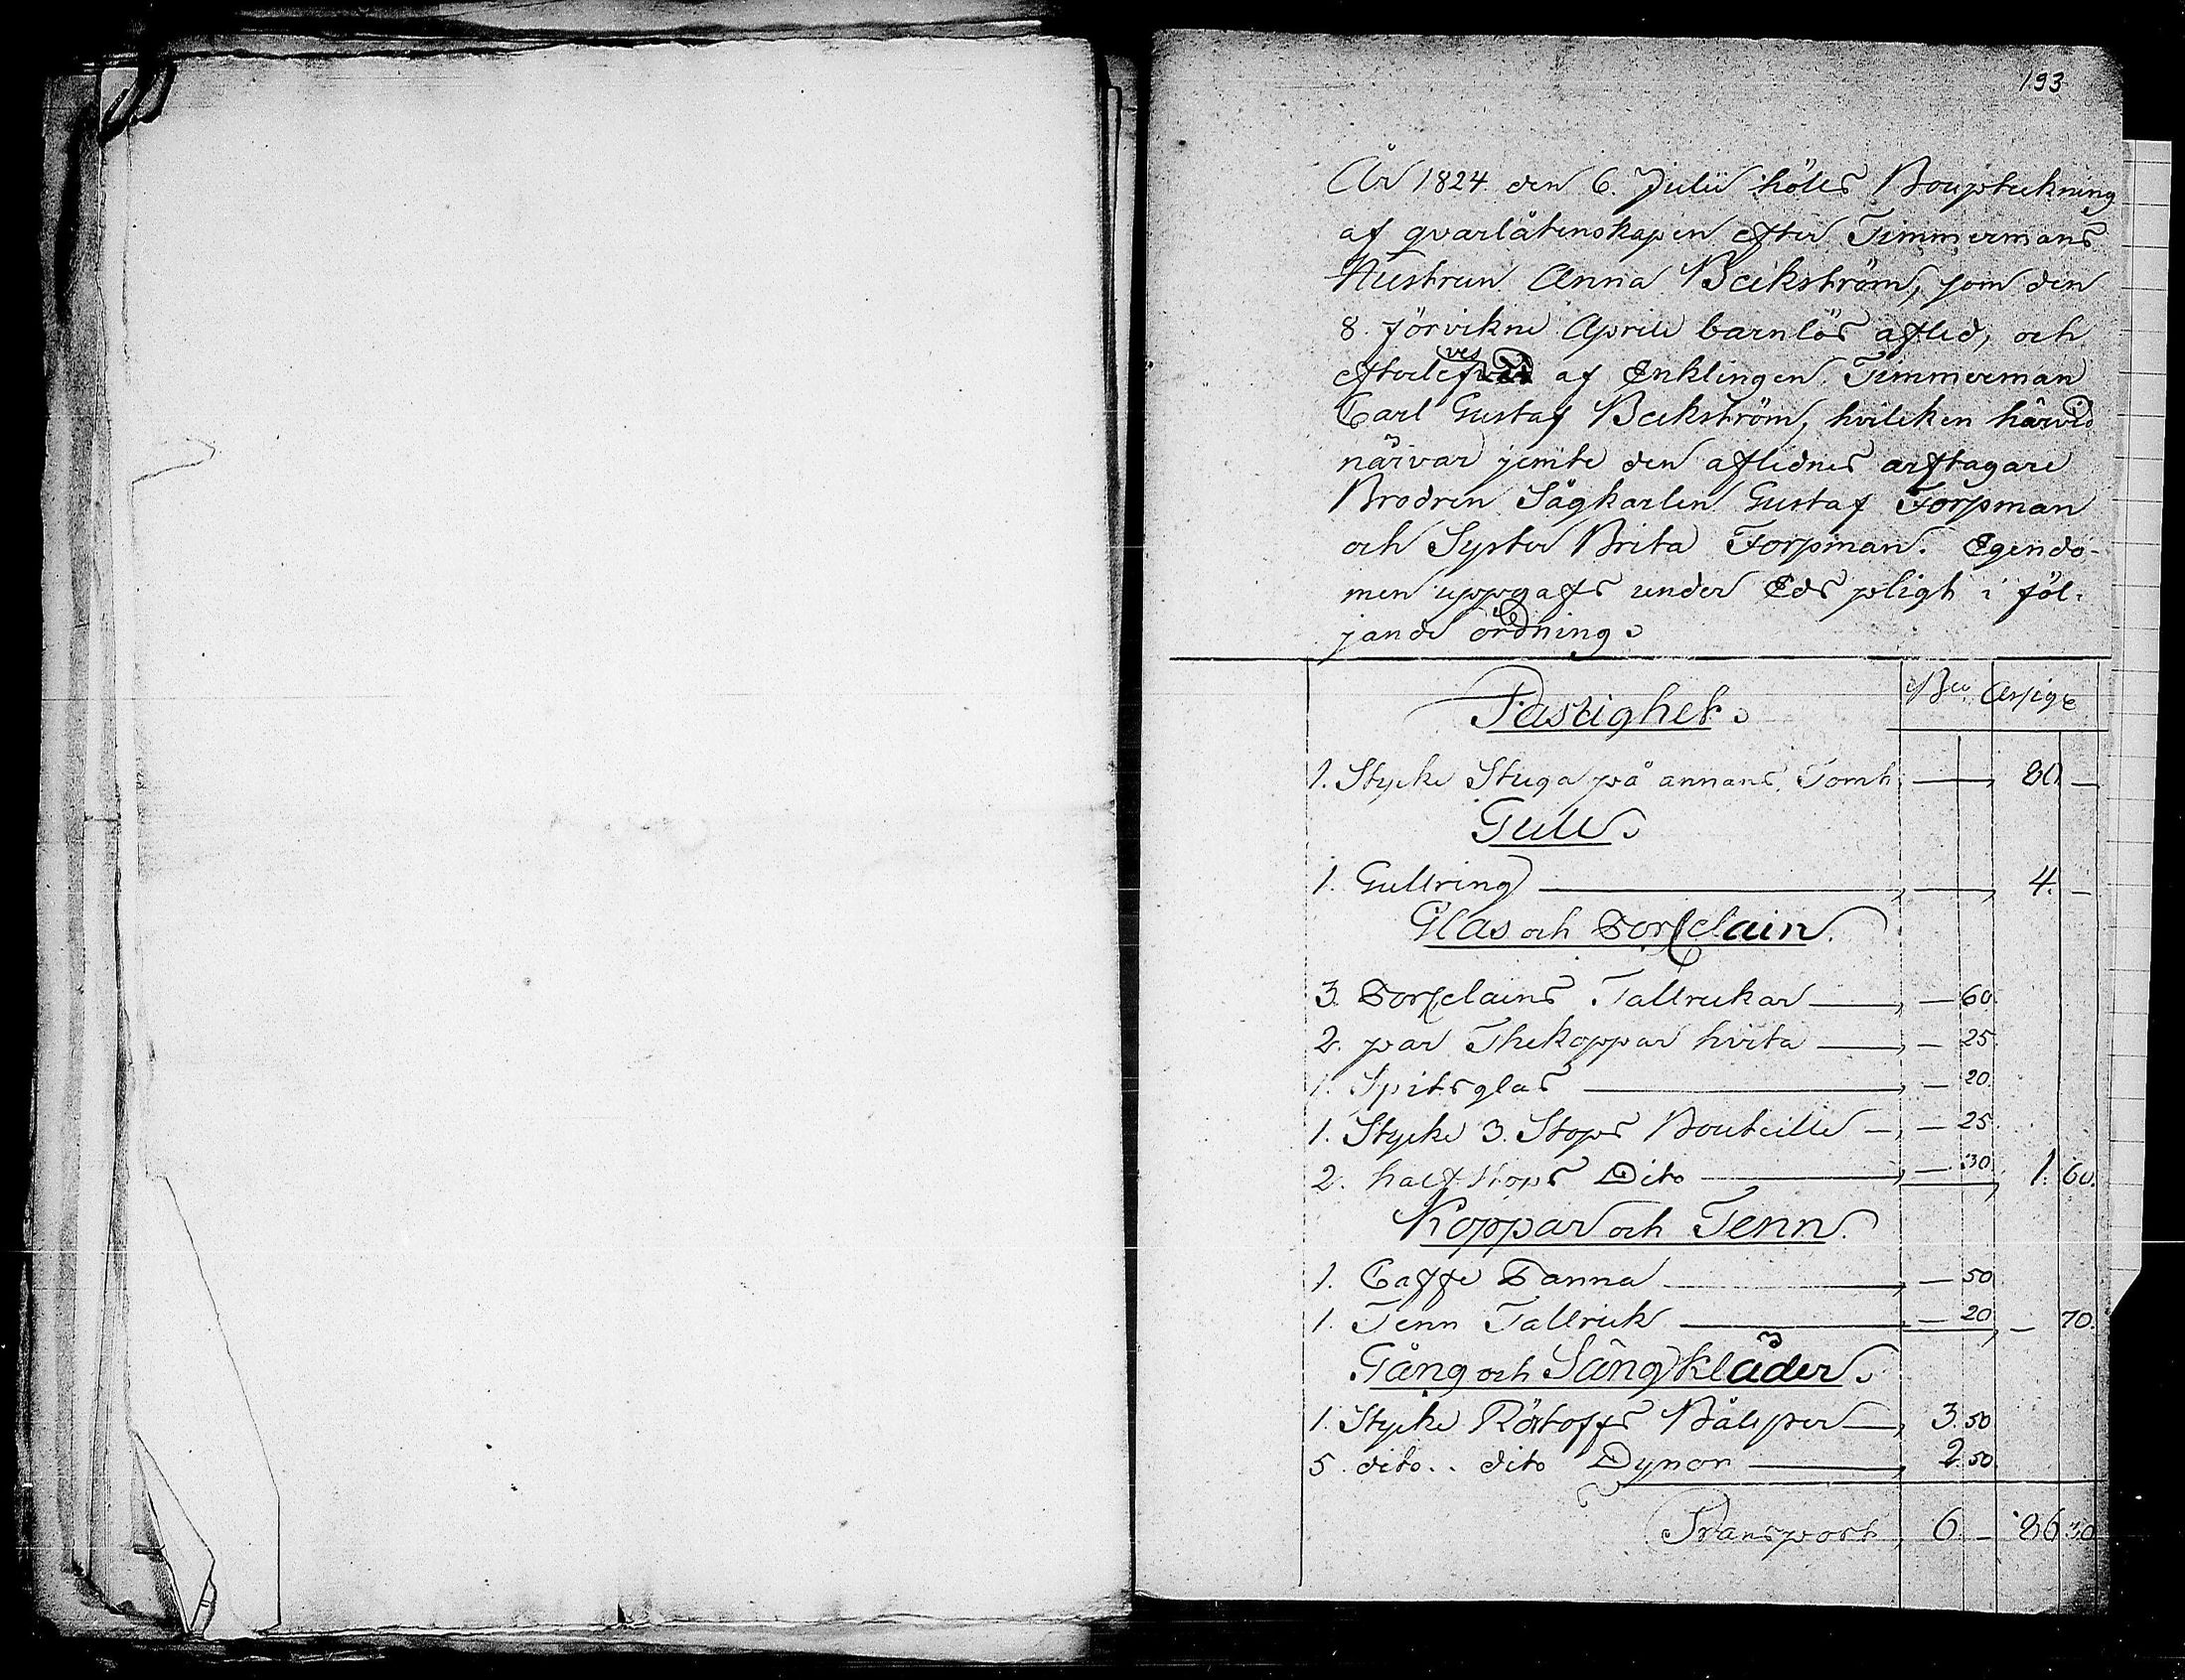 193
År 1824. den 6. Julii höls Bouptekning
af qvarlåtenskapen efter Timmermans
Hustrun Anna Beckström, som den
8. förvikne Aprill barnlös afled, och
efterlefves af Enklingen Timmerman
Carl Gustaf Beckström, hvilcken härvid
närvar jemte den aflednes arftagare
Brodren Sågkarlen Gustaf Forssman
och Syster Brita Forssman. Egendo-
men uppgafs under Eds pligt i föl-
jande ordning.
Fastighet.
1. Stycke Stuga på annans Tomt — 80. —
Gull.
1. Gullring — — 4. —
Glas och Porslain.
3. Porslains Tallrickar — — 60.
2. par Thekoppar hvita — — 25.
1. Spitsglas — — 20.
1. Stycke 3. Stops Bouteille — — 25.
2. half Stops Dito — — 30. 1. 60.
Koppar och Tenn.
1. Caffe Panna — — 50
1. Tenn Tallrick — — 20 — 70.
Gång och Sängkläder.
1. Stycke Bålster — 3. 50
5. dito.. dito Dynor — 2. 50
Transport 6. — 86 30